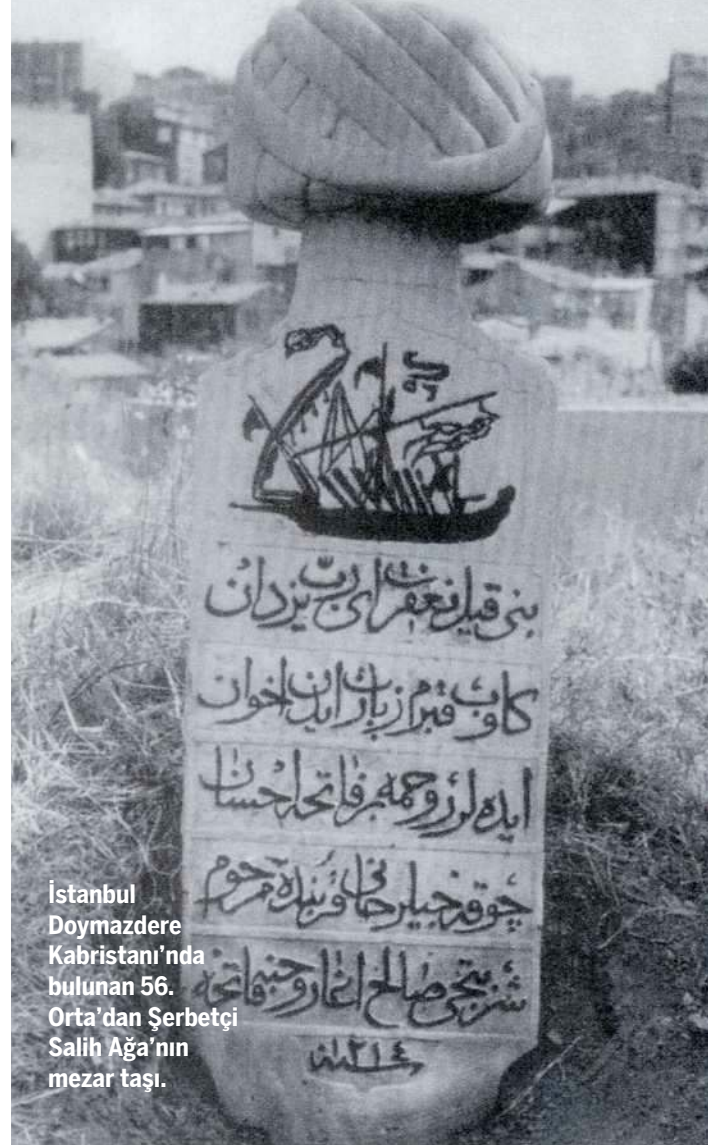 بنى قيل مغفرت اى رب يزدان
كلوب قبرم زيارت ايدن اخوان
ايده لر روحمه بر فاتحه احسان
چوقه جيلر خانى قربنده مرحوم
شربتجى صالح اغا روحيچون فاتحه
سنه ١٢١٤
İstanbul
Doymazdere
Kabristanı’nda
bulunan 56.
Orta’dan Şerbetçi
Salih Ağa’nın
mezar taşı.